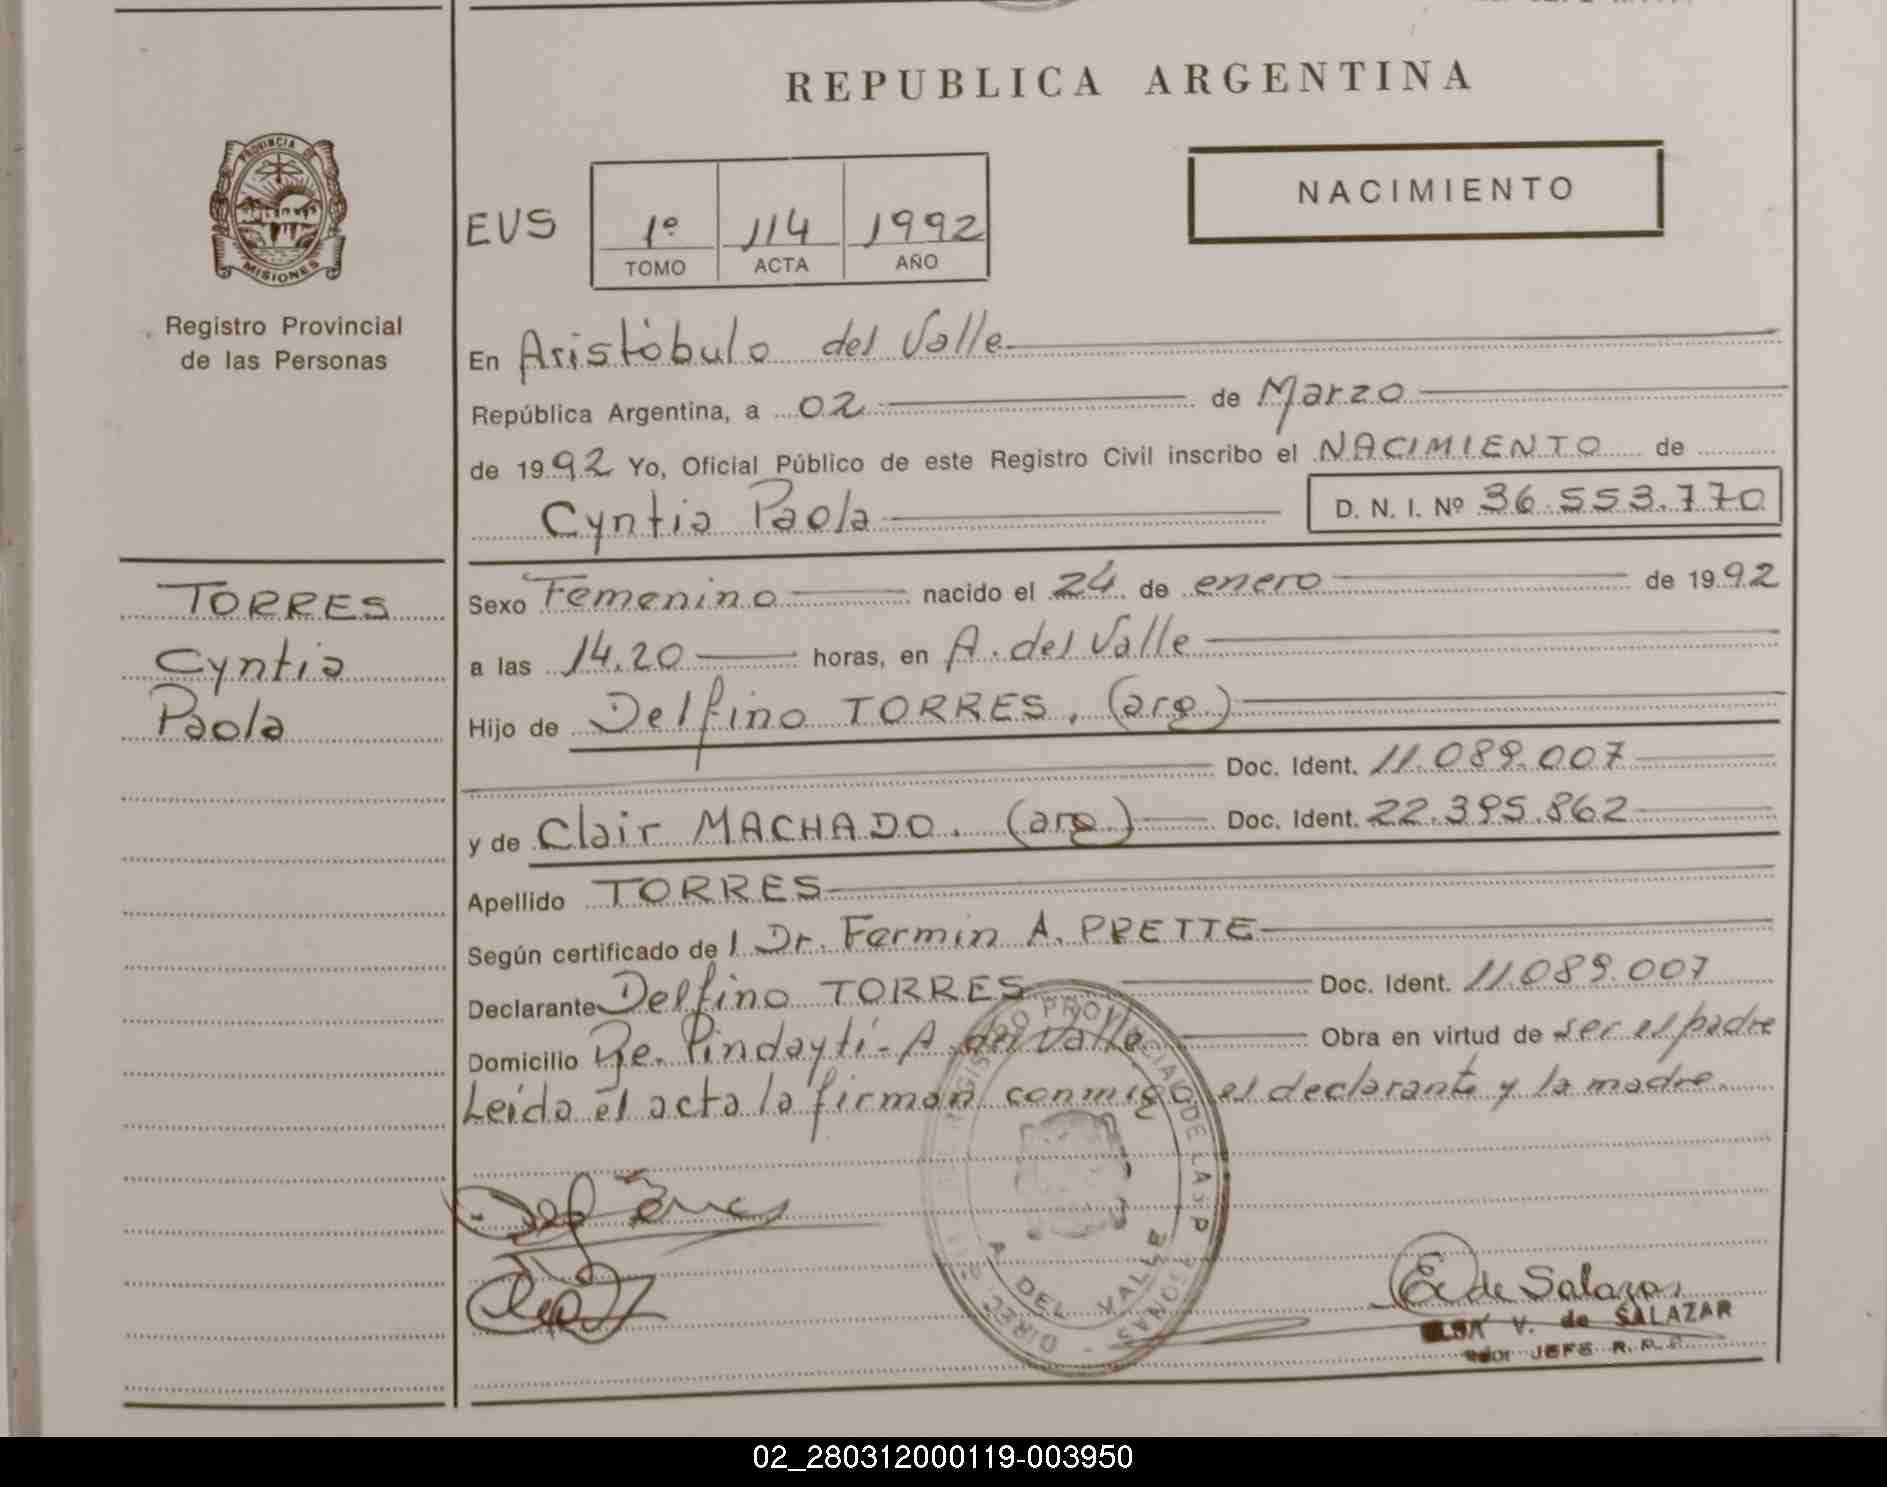 REPUBLICA ARGENTINA
PROVINCIA DE
MISIONES
Registro Provincial
de las Personas
NACIMIENTO
EVS 1º 114 1992
TOMO ACTA AÑO
En Aristóbulo del Valle
República Argentina, a 02 de Marzo
de 1992 Yo, Oficial Público de este Registro Civil inscribo el NACIMIENTO de
Cyntia Paola D. N. I. Nº 36.553.770
TORRES
Cyntia
Paola
Sexo Femenino nacido el 24 de enero de 1992
a las 14.20 horas, en A. del Valle
Hijo de Delfino TORRES. (arg.)
Doc. Ident. 11.089.007
y de Clair MACHADO. (arg.) Doc. Ident. 22.395.862
Apellido TORRES
Según certificado de l Dr. Fermin A. PRETTE
Declarante Delfino TORRES Doc. Ident. 11.089.007
Domicilio Pindaytí - A. del Valle Obra en virtud de ser el padre
Leída el acta la firman conmigo el declarante y la madre
A. DEL VALLE
E. de Salazar
V. de SALAZAR
JEFE R. P. P.
02_280312000119-003950